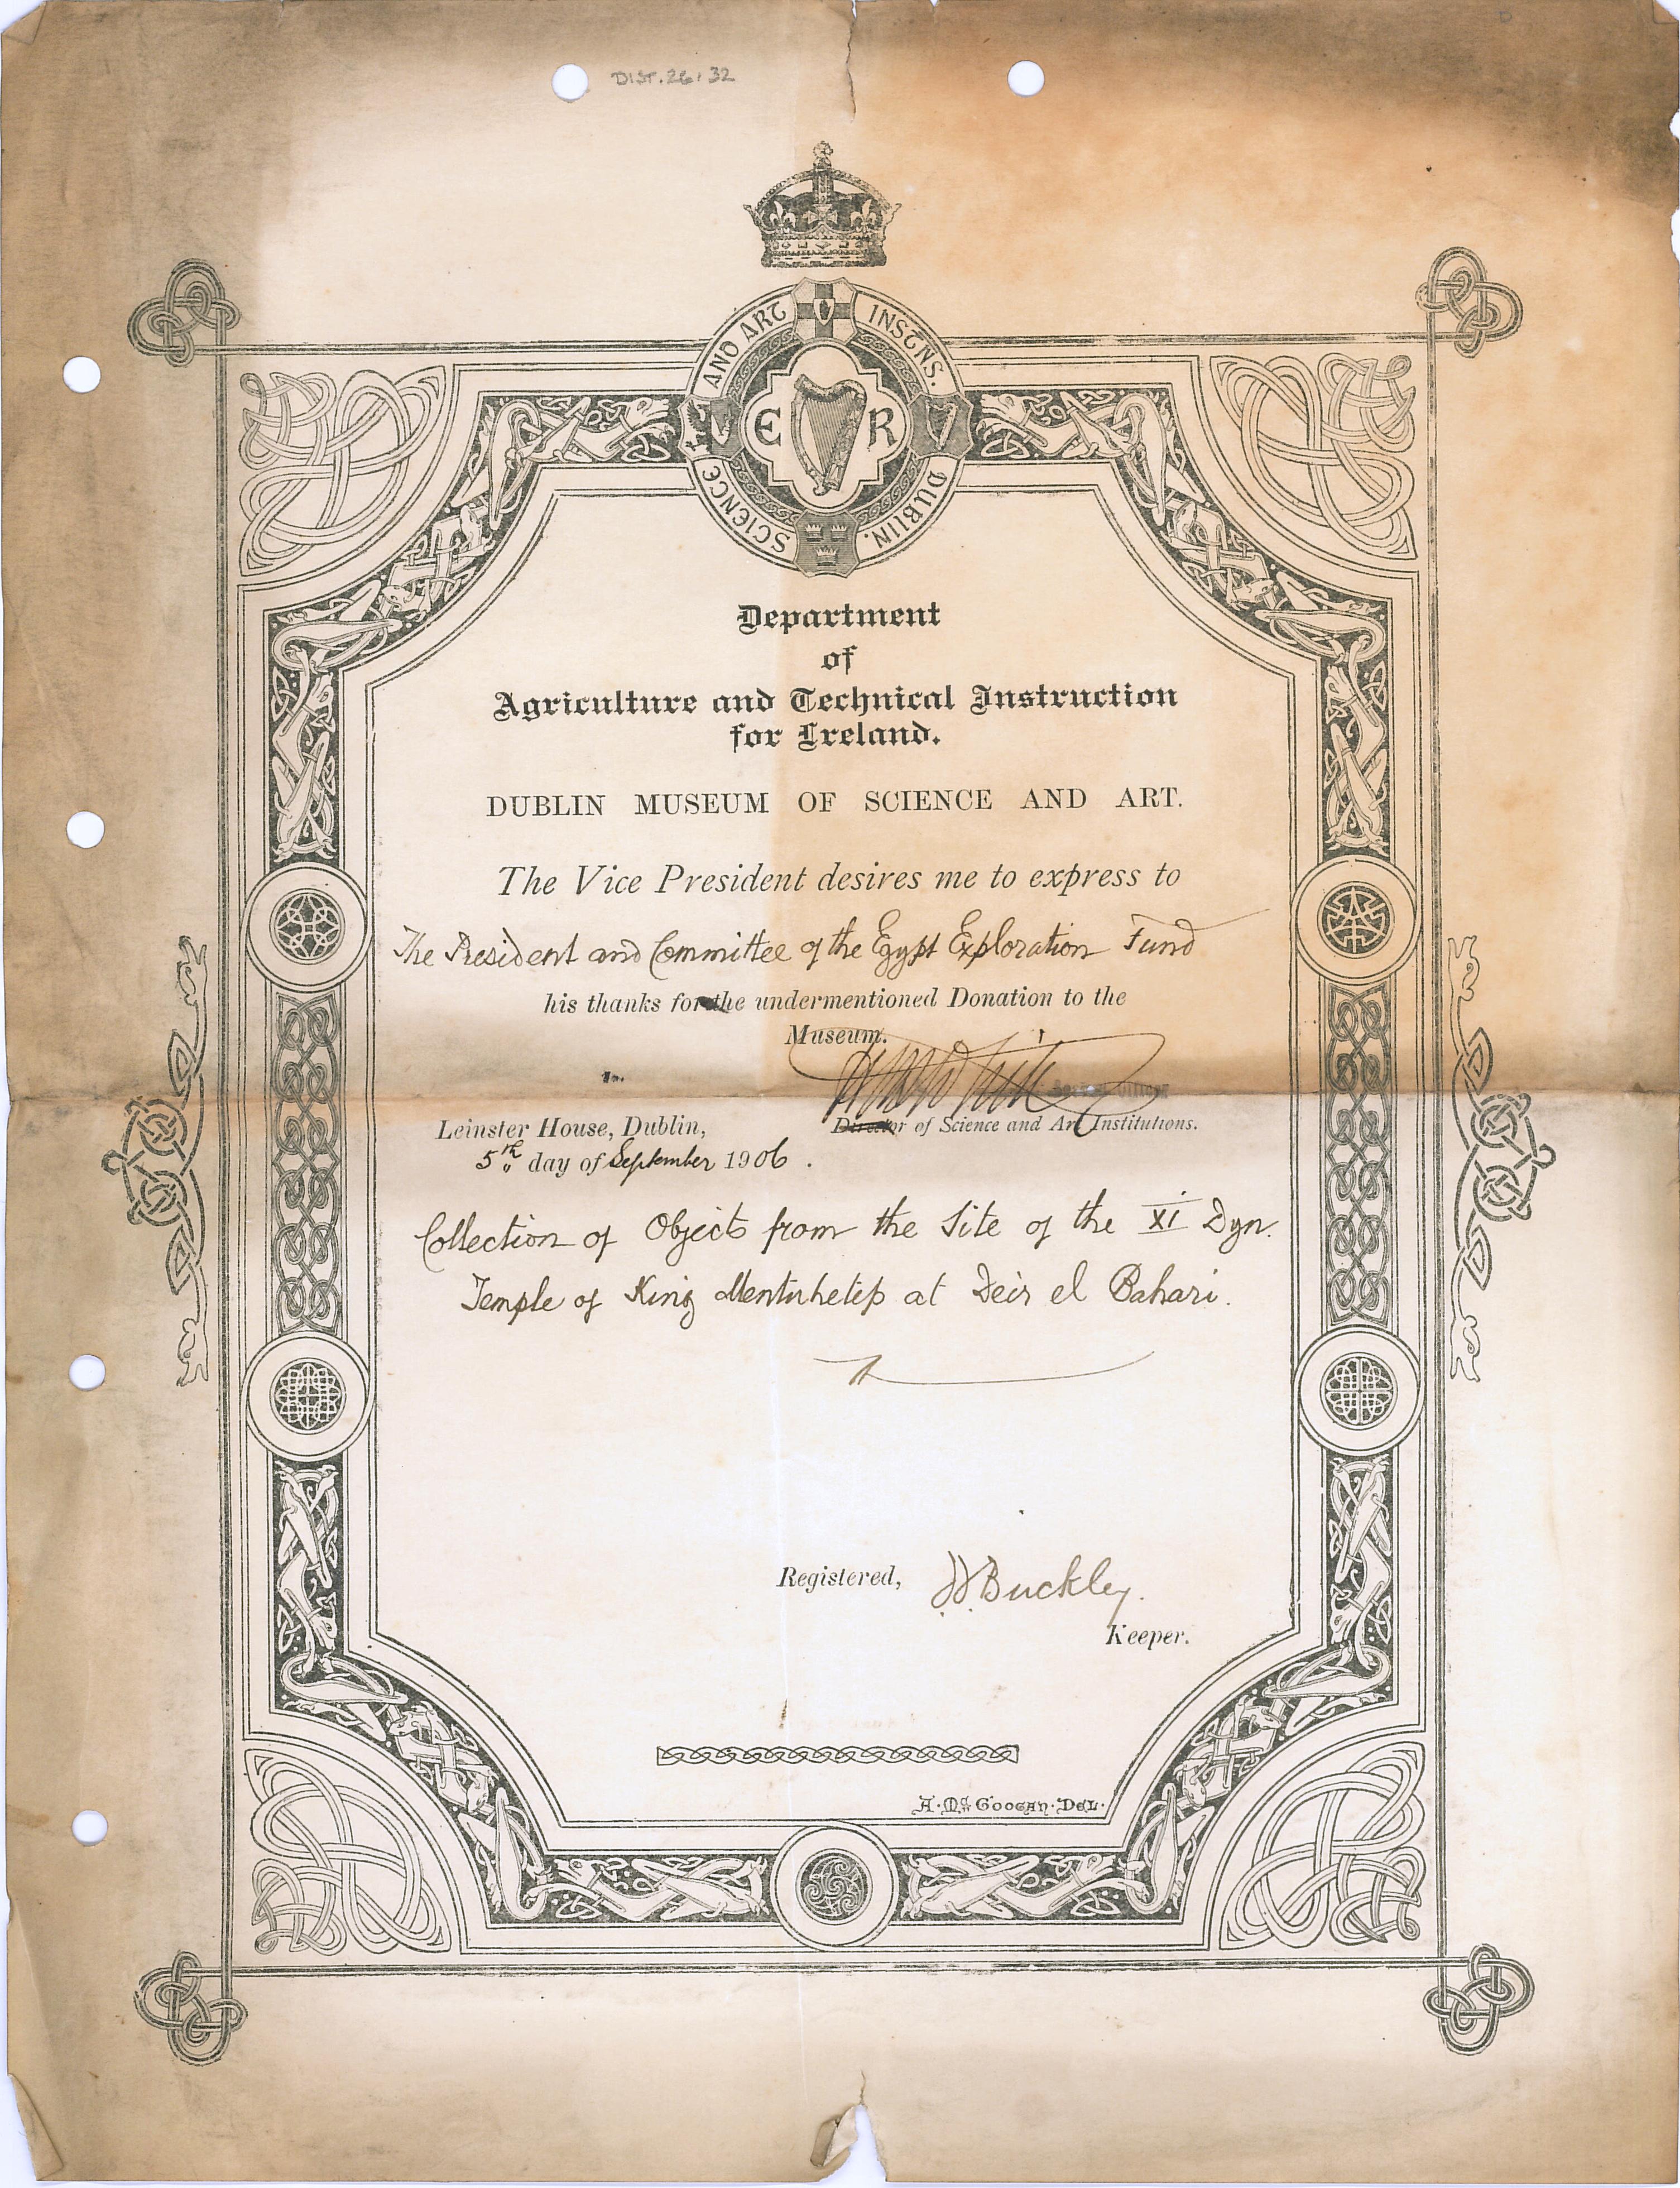 DIST.26.32
SCIENCE AND ART INSTNS. DUBLIN.
E R
Department
of
Agriculture and Technical Instruction
for Ireland.
DUBLIN MUSEUM OF SCIENCE AND ART.
The Vice President desires me to express to
The President and Committee of the Egypt Exploration Fund
his thanks for the undermentioned Donation to the
Museum.
Leinster House, Dublin,
Director of Science and Art Institutions.
5th day of September 1906.
Collection of Objects from the Site of the XI Dyn.
Temple of King Mentuhetep at Deir el Bahari.
Registered, JJ Buckley.
Keeper.
A. Mc Googan. Del.